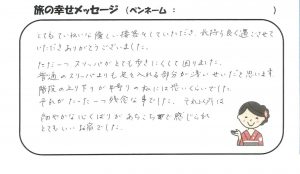 旅の幸せメッセージ（ペンネーム：　　　　　　）
とてもていねいな優しい接客をしていただき、気持ち良く過ごさせて
いただきありがとうございました。
ただ一つ スリッパが とても歩きにくくて 困りました。
普通のスリッパよりも 足を入れる部分が 浅いせいだと思います。
階段の上り下りが 手すりの私には 恐いくらいでした。
それがたった一つ残念な事でした。それ以外は
細やかな心くばりが あちこちで感じられ
とてもいいお宿でした。